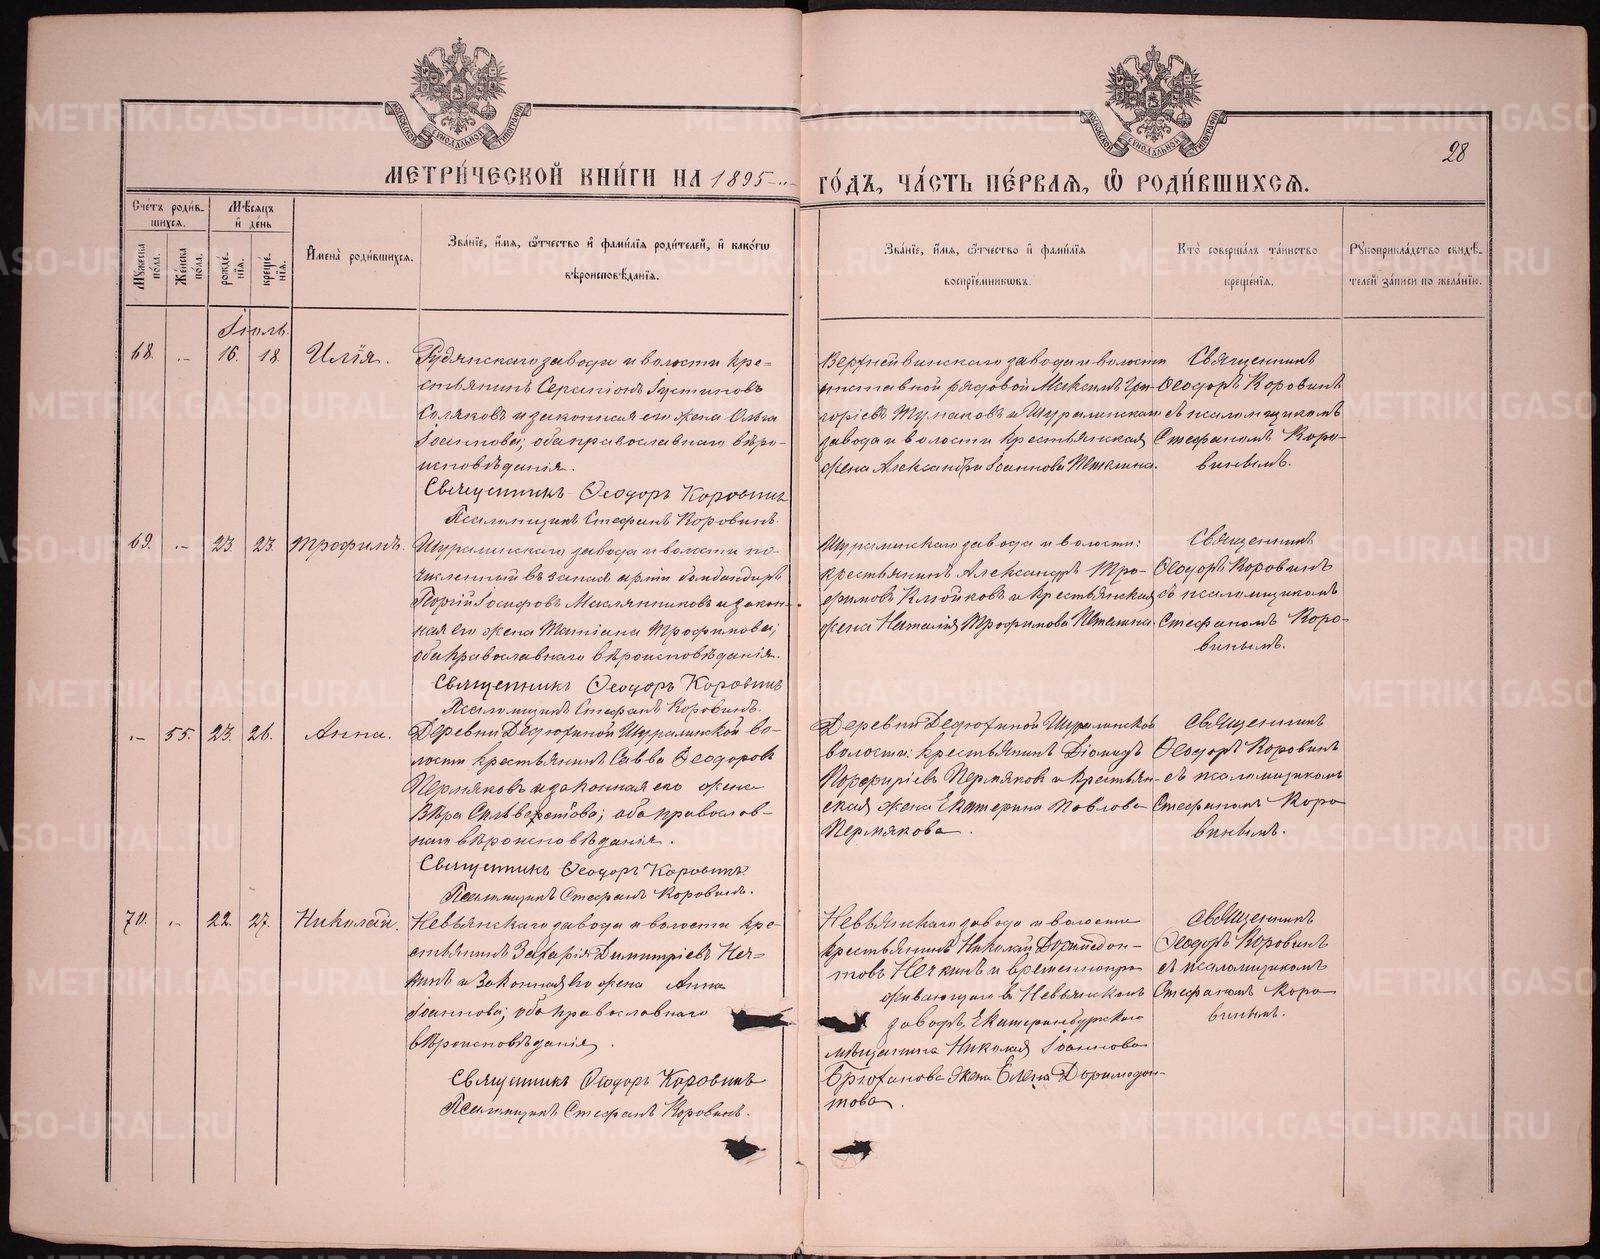 МОСКОВСКОЙ СѴНОДАЛЬНОЙ ТИПОГРАФІИ
МОСКОВСКОЙ СѴНОДАЛЬНОЙ ТИПОГРАФІИ
28
МЕТРИ́ЧЕСКОЙ КНИ́ГИ НА 1895 ГО́ДЪ, ЧА́СТЬ ПЕ́РВАЯ, Ѿ РОДИ́ВШИХСЯ.
Сче́тъ роди́в-
шихся.
Мѣсяцъ
и́ де́нь
Му́жеска по́ла.
Же́нска по́ла.
рожде́-нія.
креще́-нія.
И҆мена̀ роди́вшихся.
Зва́ніе, и҆́мя, ѻ҆́тчество и҆ фами́лія роди́телей, и҆ како́гѡ
вѣроисповѣ́данія.
Зва́ніе, и҆́мя, ѻ҆́тчество и҆ фами́лія
воспріе́мниковъ.
Кто̀ соверша́лъ та́инство
креще́нія.
Рꙋкоприкла́дство свидѣ́-
телей за́писи по жела́нію.
Іюль.
68. 16. 18. Илія.
Рудянскаго завода и волости кре-
стьянинъ Серапіонъ Іустиновъ
Соляковъ и законная его жена Ольга
Іоаннова; оба православнаго вѣро-
исповѣданія.
Священникъ Ѳеодоръ Коровинъ
Псаломщикъ Стефанъ Коровинъ.
Верхнейвинскаго завода и волости
отставной рядовой Максимъ Гри-
горіевъ Тумаковъ и Шуралинскаго
завода и волости крестьянская
жена Александра Іоаннова Петелина.
Священникъ
Ѳеодоръ Коровинъ
съ псаломщикомъ
Стефаномъ Коро-
винымъ.
69. 23. 23. Трофимъ.
Шуралинскаго завода и волости по-
численный въ запасъ арміи бомбандиръ
Георгій Іосифовъ Маслянниковъ и закон-
ная его жена Татіана Трофимова;
оба православнаго вѣроисповѣданія.
Священникъ Ѳеодоръ Коровинъ
Псаломщикъ Стефанъ Коровинъ.
Шуралинскаго завода и волости:
крестьянинъ Александръ Тро-
фимовъ Клюйковъ и крестьянская
жена Наталія Трофимова Петелина.
Священникъ
Ѳеодоръ Коровинъ
съ псаломщикомъ
Стефаномъ Коро-
винымъ.
55. 23. 26. Анна.
Деревни Дедюхиной Шуралинской во-
лости крестьянинъ Савва Ѳеодоровъ
Пермяковъ и законная его жена
Вѣра Сильверстова; оба православ-
наго вѣроисповѣданія.
Священникъ Ѳеодоръ Коровинъ
Псаломщикъ Стефанъ Коровинъ.
Деревни Дедюхиной Шуралинской
волости: крестьянинъ Діомидъ
Порфиріевъ Пермяковъ и крестьян-
ская жена Екатерина Павлова
Пермякова.
Священникъ
Ѳеодоръ Коровинъ
съ псаломщикомъ
Стефаномъ Коро
винымъ.
70. 22. 27. Николай.
Невьянскаго завода и волости кре
стьянинъ Захарія Димитріевъ Неч-
кинъ и законная его жена Анна
Іоаннова; оба православнаго
вѣроисповѣданія.
Священникъ Ѳеодоръ Коровинъ
Псаломщикъ Стефанъ Коровинъ.
Невьянскаго завода и волости
крестьянинъ Николай Доримедон-
товъ Нечкинъ и временнопро
живающаго въ Невьянскомъ
заводѣ, Екатеринбургскаго
мѣщанина Николая Іоаннова
Брюханова жена Елена Доримедон-
това.
Священникъ
Ѳеодоръ Коровинъ
съ псаломщикомъ
Стефаномъ Коро
винымъ.
METRIKI.GASO-URAL.RU